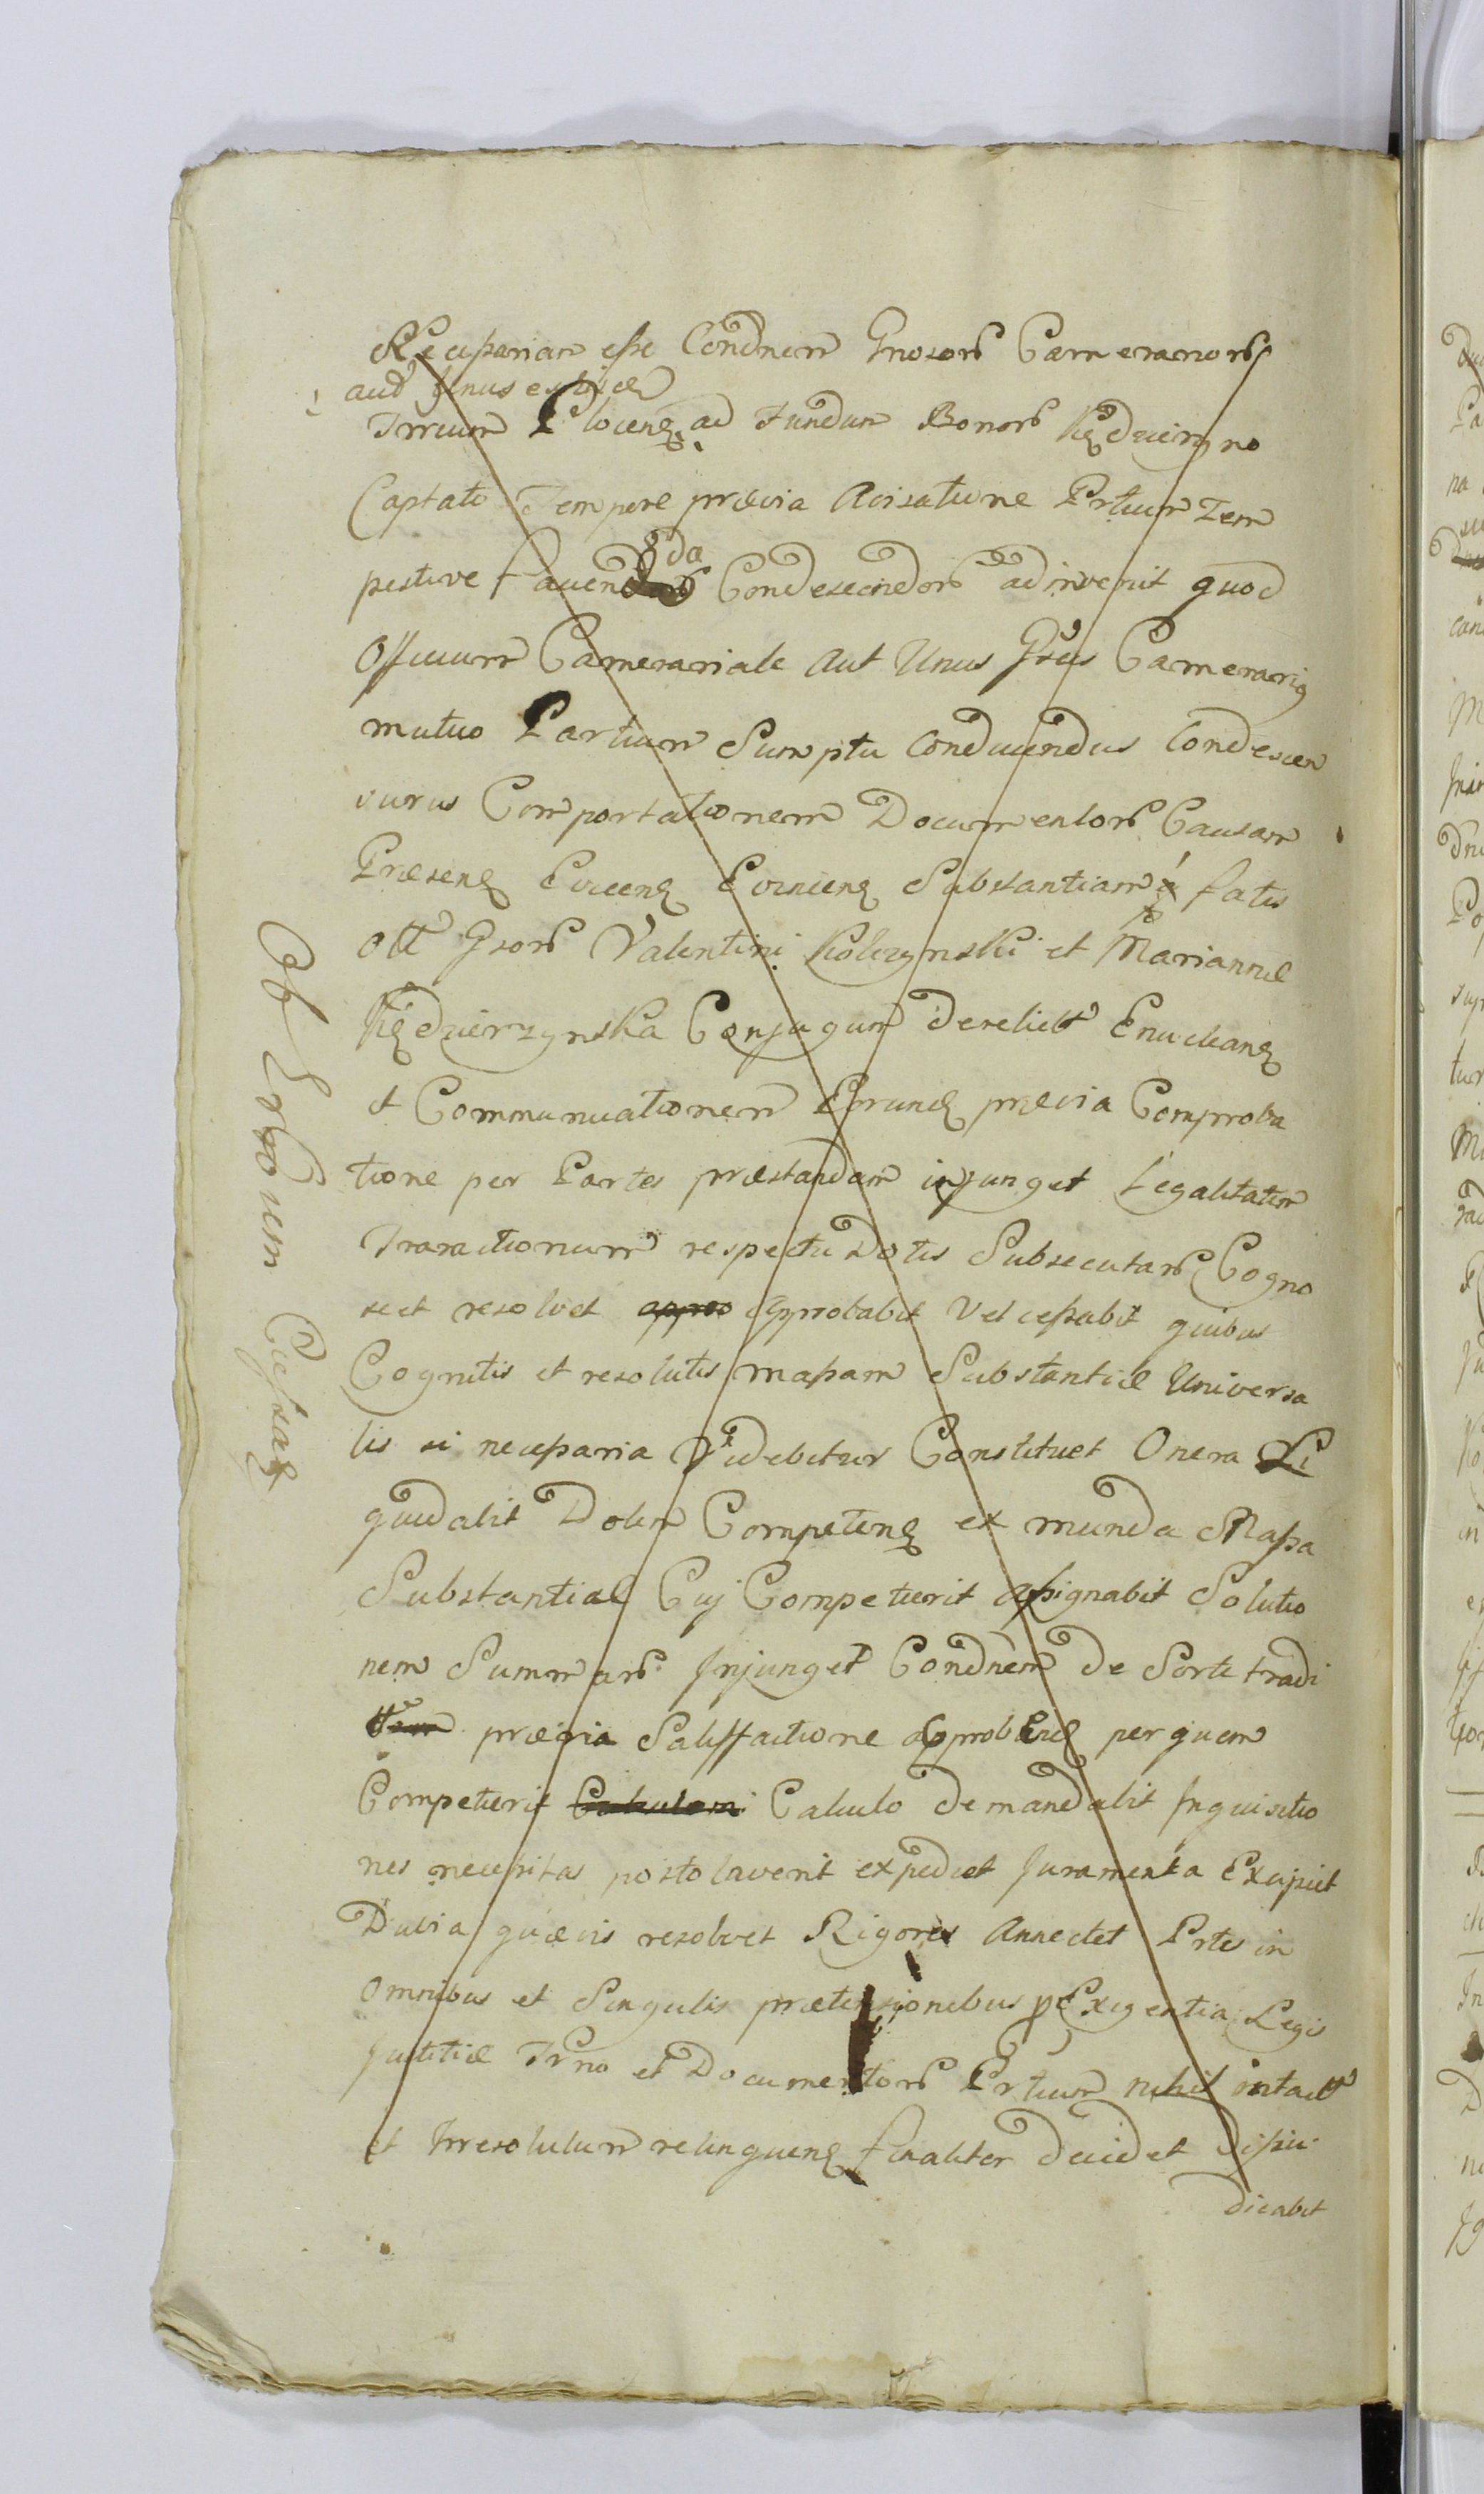 Necessariam esse Condnem Gnosorb Camerariorb
aut Unus ex iisdem
Trrium Plocens. ad Fundum Bonorb Kędzierzyno
Captato Tempore prævia Avisatione Prtium Tem
pestive facienda Condescendorb adinvenit quod
Officium Camerariale Aut Unus Gsus Camerariq
mutuo Partium Sumptu Conducendus Condescen
surus Comportationem Documentorb Causam
Præsenę Evicenę Evincenę Substantiam á fatis
Olt Gsorb Valentini Kolczynski et Mariannæ
Kędzierzynska Conjugum Derelict Enucleanę
et Communicationem Eorundę prævia Comproba
tione per Partes præstandam injunget Legalitatem
Tranactionum respectu Dotis Subsecutarb Cogno
scet resolvet appro Approbabit Vel cessabit quibus
Cognitis et resolutis massam Substantiæ Universa
lis si necessaria Videbitur Constituet Onera Li
quidabit Dotem Competenę ex munda Massa
Substantiæ Cuj Competierit assignabit Solutio
nem Summarb Injunget Condnem de Sorte tradi
prævia Satisffactione approbandę per quem
Competierit Calculo demandabit Inquisitio
nes necessitas postolaverit expediet Juramenta Excipiet
Dubia quævis resolvet Rigores Annectet Prtes in
Omnibus et Singulis prætensionibus p Exigentia Legis
Justitiæ Trno et Documentorb Prtium nihil intact
et Irresolutum relinquenę finaliter Decidet Disiu
dicabit
Ob Errorem Cessat